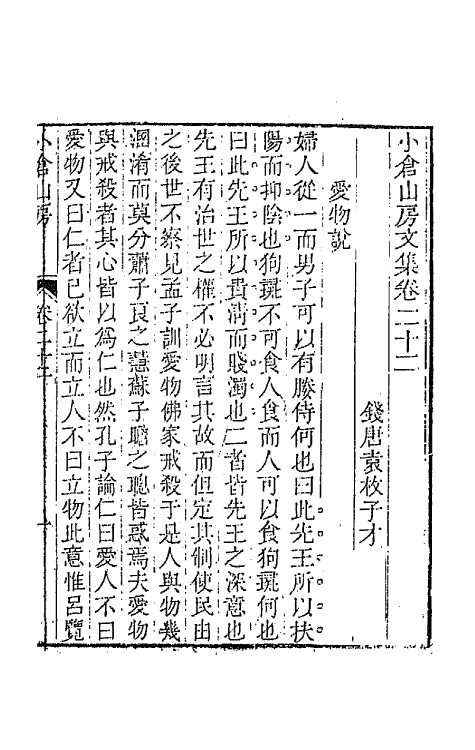 小倉山房文集卷二十二
錢唐袁枚子才
愛物說
婦人從一而男子可以有媵侍何也曰此先王所以扶
陽而抑陰也狗彘不可食人食而人可以食狗彘何也
曰此先王所以貴淸而賤濁也二者皆先王之深意也
先王有治世之權不必明言其故而但定其制使民由
之後世不察見孟子訓愛物佛家戒殺于是人與物幾
溷淆而莫分蕭子良之慧蘇子瞻之聰皆惑焉夫愛物
與戒殺者其心皆以爲仁也然孔子論仁曰愛人不曰
愛物又曰仁者已欲立而立人不曰立物此意惟呂覽
小倉山房 卷二十二 一